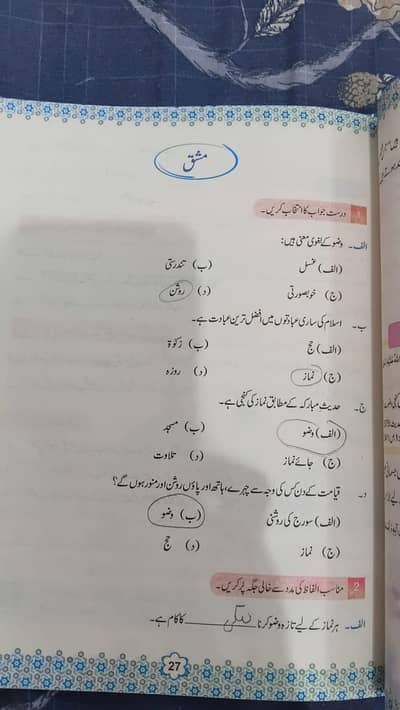 مشق
1 درست جواب کا انتخاب کریں۔
الف۔ وضو کے لغوی معنی ہیں:
(الف) غسل (ب) تندرستی
(ج) خوبصورتی (د) روشن
ب۔ اسلام کی ساری عبادتوں میں افضل ترین عبادت ہے۔
(الف) حج (ب) زکوٰۃ
(ج) نماز (د) روزہ
ج۔ حدیث مبارکہ کے مطابق نماز کی کنجی ہے۔
(الف) وضو (ب) مسجد
(ج) جائے نماز (د) تلاوت
د۔ قیامت کے دن کس کی وجہ سے چہرے، ہاتھ اور پاؤں روشن اور منور ہوں گے؟
(الف) سورج کی روشنی (ب) وضو
(ج) نماز (د) حج
2 مناسب الفاظ کی مدد سے خالی جگہ پُر کریں۔
الف۔ ہر نماز کے لیے تازہ وضو کرنا نیکی کا کام ہے۔
27